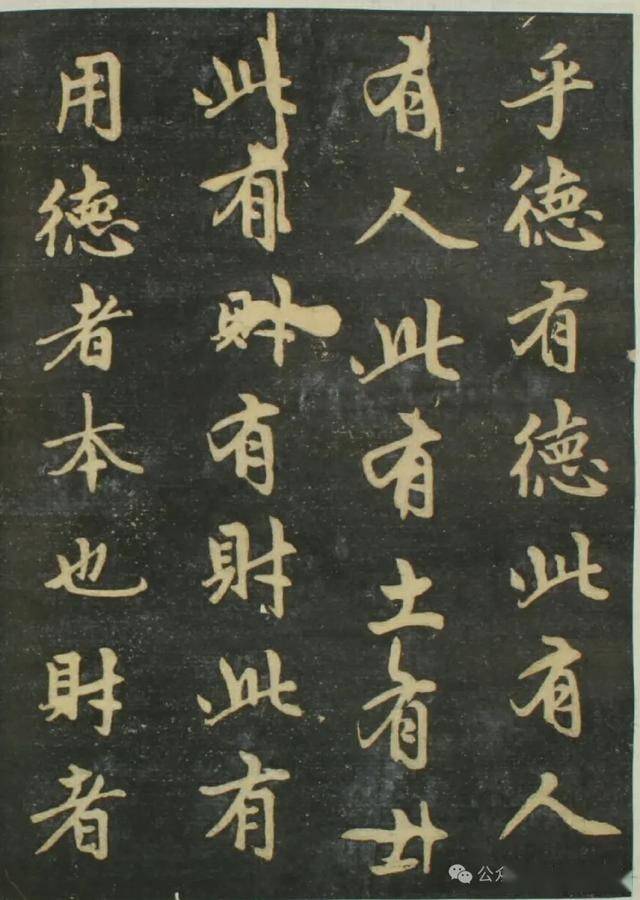 乎德有德此有人
有人此有土有土
此有財有財此有
用德者本也財者
公